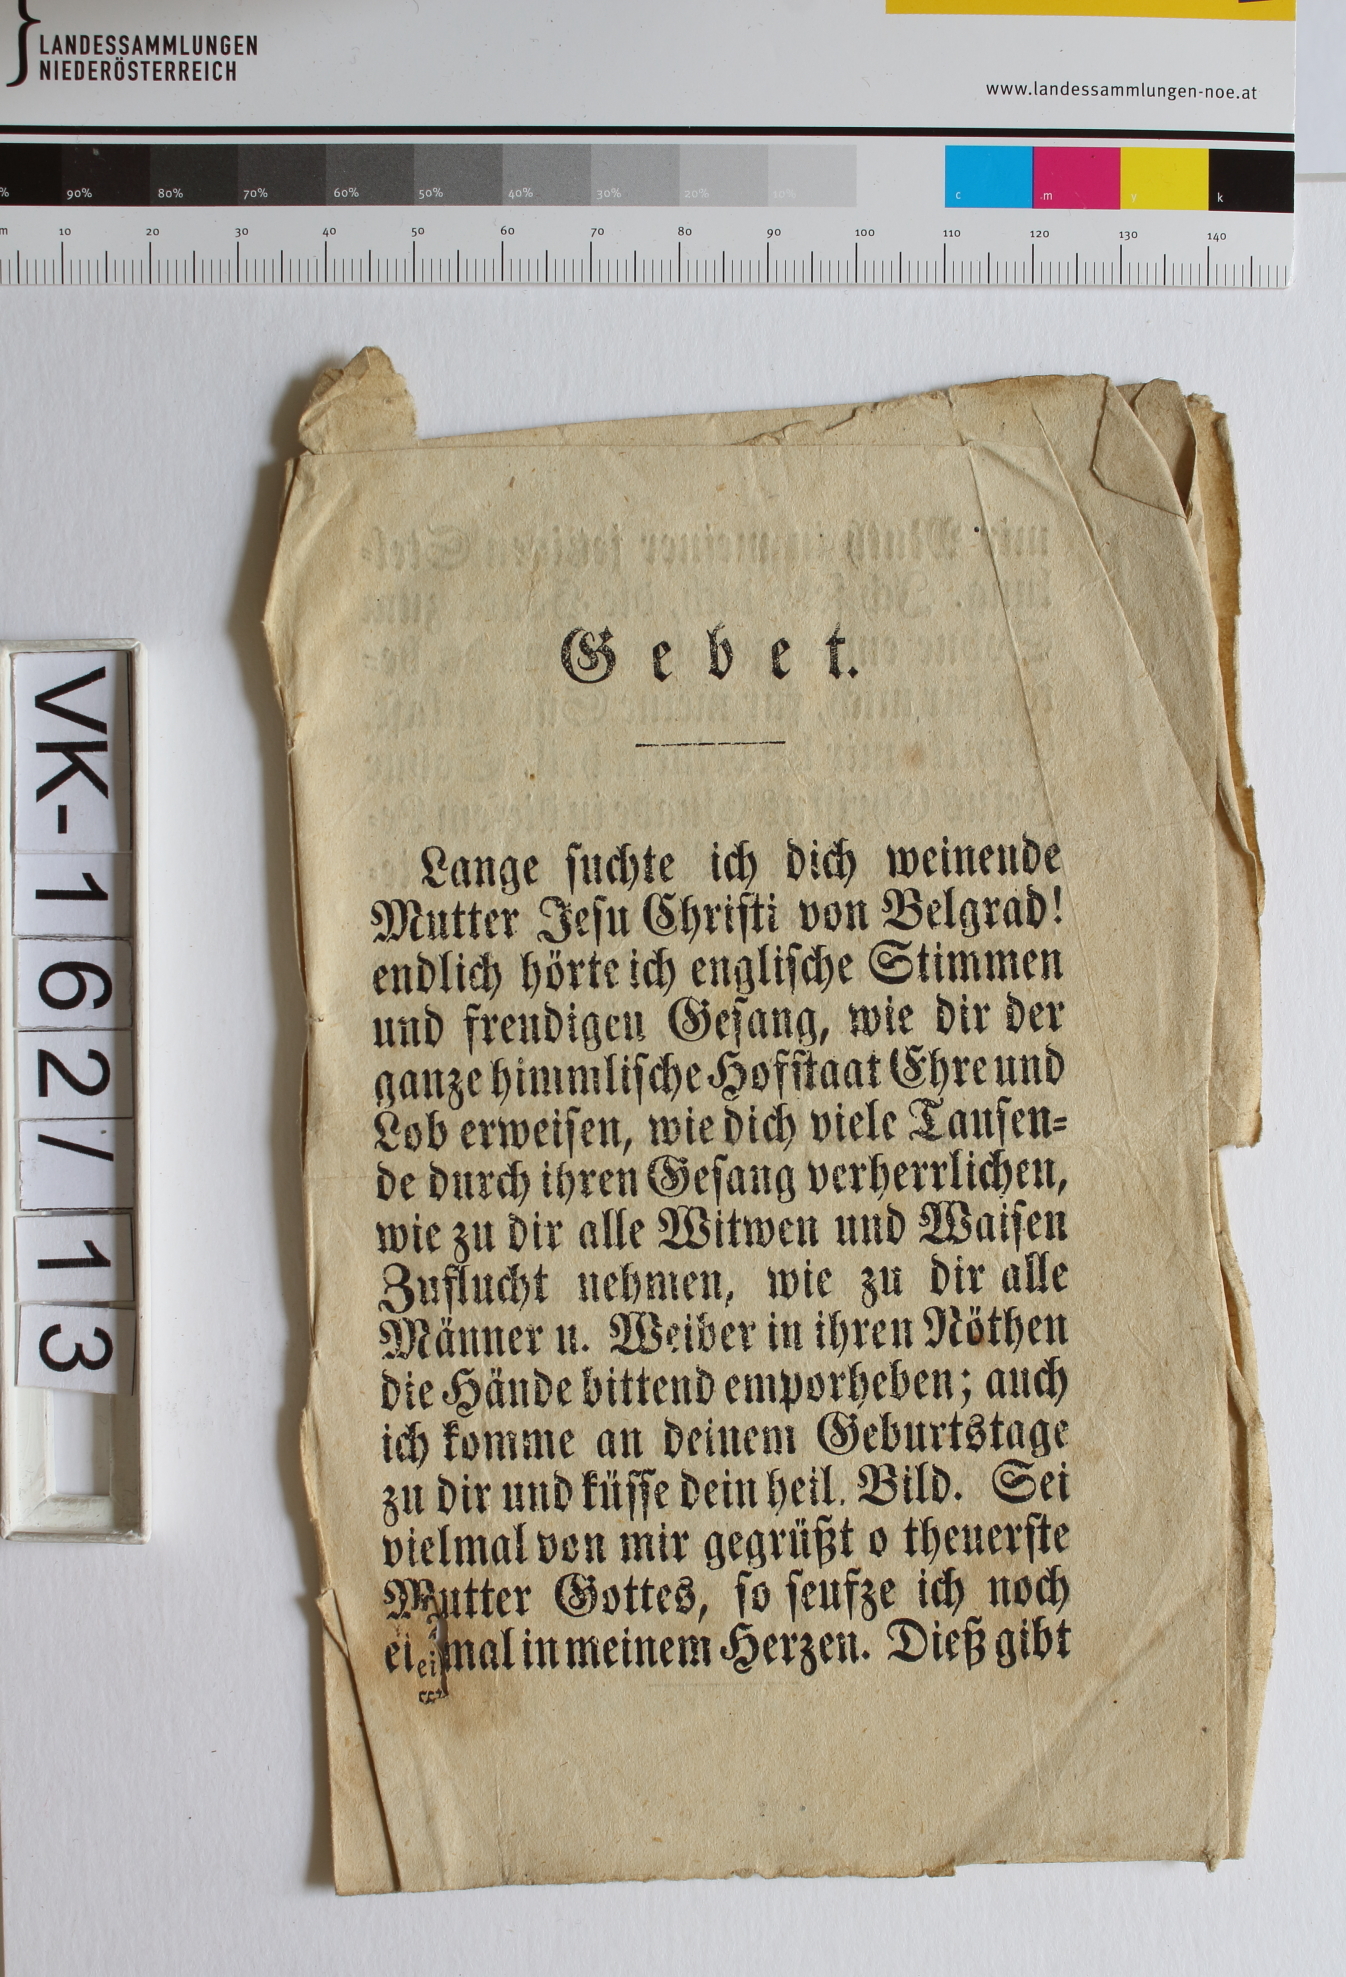 LANDESSAMMLUNGEN
NIEDERÖSTERREICH
www.landessammlungen-noe.at
90% 80% 70% 60% 50% 40% 30% 20% 10% c m y k
10 20 30 40 50 60 70 80 90 100 110 120 130 140
VK-162/13
Gebet.
Lange suchte ich dich weinende
Mutter Jesu Christi von Belgrad!
endlich hörte ich englische Stimmen
und freudigen Gesang, wie dir der
ganze himmlische Hofstaat Ehre und
Lob erweisen, wie dich viele Tausen=
de durch ihren Gesang verherrlichen,
wie zu dir alle Witwen und Waisen
Zuflucht nehmen, wie zu dir alle
Männer u. Weiber in ihren Nöthen
die Hände bittend emporheben; auch
ich komme an deinem Geburtstage
zu dir und küsse dein heil. Bild. Sei
vielmal von mir gegrüßt o theuerste
Mutter Gottes, so seufze ich noch
mal in meinem Herzen. Dieß gibt